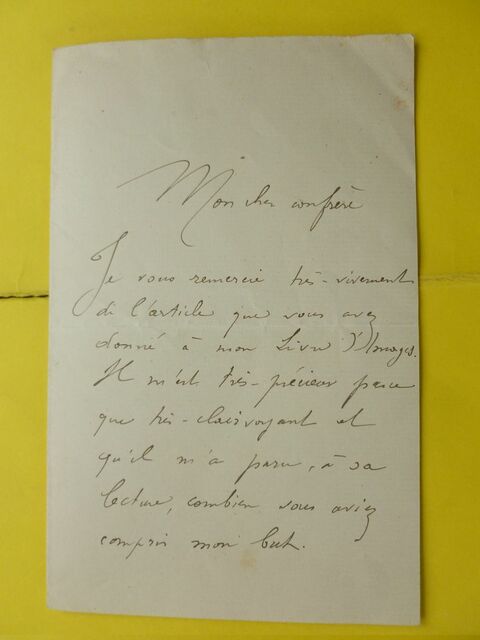 Mon cher confrère
Je vous remercie très-vivement
de l'article que vous avez
donné à mon Livre d'Images.
Il m'est très-précieux parce
que très-clairvoyant et
qu'il m'a paru, à sa
lecture, combien vous aviez
compris mon but.